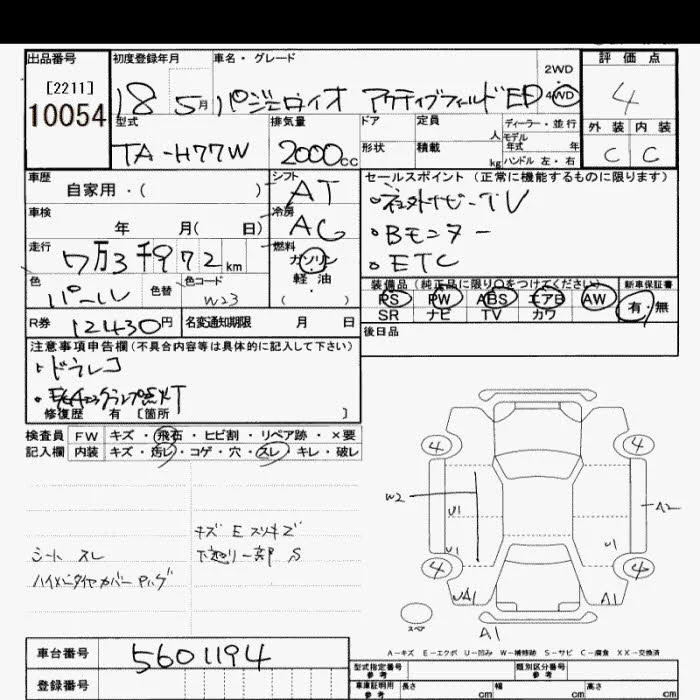 出品番号 初度登録年月 車名・グレード 評価点
[2211]
10054
18 5月 パジェロイオ アクティブフィールドED 2WD 4WD 4
型式 排気量 ドア 定員 人 ディーラー・並行 外装 内装
TA-H77W 2000cc 形状 積載 kg モデル年式 年 ハンドル 左・右 C C
車歴 シフト セールスポイント (正常に機能するものに限ります)
自家用・( ) AT ・社外ナビ-TV
車検 冷房 ・Bモニター
年 月( 日) AC ・ETC
走行 7万3千972km 燃料 ガソリン 軽油 ( )
色 パール 色替 色コード W23
装備品 (純正品に限り○をつけてください) 新車保証書
PS PW ABS エアB AW 有・無
SR ナビ TV カワ
R券 12430円 名変通知期限 月 日 後日品
注意事項申告欄(不具合内容等は具体的に記入して下さい)
・ドラレコ
修復歴 有 [箇所 ]
検査員 FW キズ・飛石・ヒビ割・リペア跡・×要
記入欄 内装 キズ・汚レ・コゲ・穴・スレ・キレ・破レ
キズ E スリキズ
シート スレ 下廻り一部 S
4 4
W2 U1 A2
U1 U1
4 4
A1
スペア A1
A-キズ E-エクボ U-凹み W-補修跡 S-サビ C-腐食 XX-交換済
車台番号 5601194 型式指定番号 参考 類別区分番号 参考
登録番号 車庫証明用 参考 長さ cm 幅 cm 高さ cm